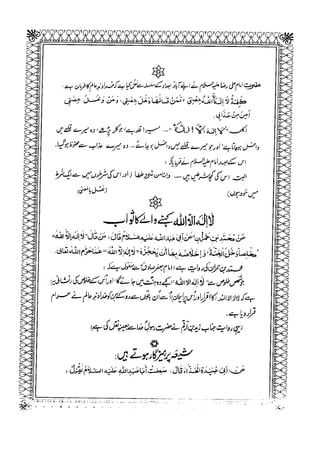 حضرت امام علی رضا علیہ السلام نے اپنے آباؤ اجداد کے سلسلے سے نقل کیا ہے کہ خداوند عالم کا فرمان ہے :
كَلِمَةُ لَا إِلٰهَ إِلَّا اللهُ حِصْنِي، فَمَنْ قَالَهَا دَخَلَ حِصْنِي، وَمَنْ دَخَلَ حِصْنِي
أَمِنَ مِنْ عَذَابِي.
(کلمہ لَا إِلٰهَ إِلَّا اللهُ — میرا قلعہ ہے، جو کلمہ پڑھے، وہ میرے قلعے میں
داخل ہو جاتا ہے اور جو میرے قلعے میں داخل ہو جائے — وہ میرے عذاب سے محفوظ ہو گیا۔
اس کے بعد امام علیہ السلام نے فرمایا کہ :
البتہ اس کی کچھ شرطیں ہیں — وانا من شروطها (اور اس کی شرطوں میں سے ایک شرط
میں خود ہوں)
لا إله إلا الله کہنے والے کا ثواب
عَنْ مُحَمَّدِ بْنِ حُمْرَانَ عَنْ أَبِي عَبْدِ اللهِ عَلَيْهِ السَّلَامُ قَالَ، مَنْ قَالَ "لَا إِلٰهَ إِلَّا اللهُ"
مُخْلِصًا دَخَلَ الْجَنَّةَ، وَإِخْلَاصُهُ بِهَا أَنْ يَحْجُزَهُ "لَا إِلٰهَ إِلَّا اللهُ" عَمَّا حَرَّمَ اللهُ تَعَالَى.
محمد بن حمران کی روایت ہے، امام جعفر صادقؑ سے منقول ہے کہ :
جو شخص خلوص سے لا الہ الا اللہ کہے وہ جنت میں جائے گا اور اس کے خلوص کی نشانی یہ
ہے کہ لا الہ الا اللہ کا اقرار اور اس پر ایمان اسے ان باتوں سے روکے جن کو خداوند عالم نے حرام
قرار دیا ہے۔
(یہی روایت جناب زید بن ارقم نے حضرت رسول خدا سے بعینہ نقل کی ہے)
شیعہ پرہیزگار ہوتے ہیں:
عَنْ أَبِي عُبَيْدَةَ الْحَذَّاءِ قَالَ، سَمِعْتُ أَبَا عَبْدِ اللهِ عَلَيْهِ السَّلَامُ يَقُولُ،